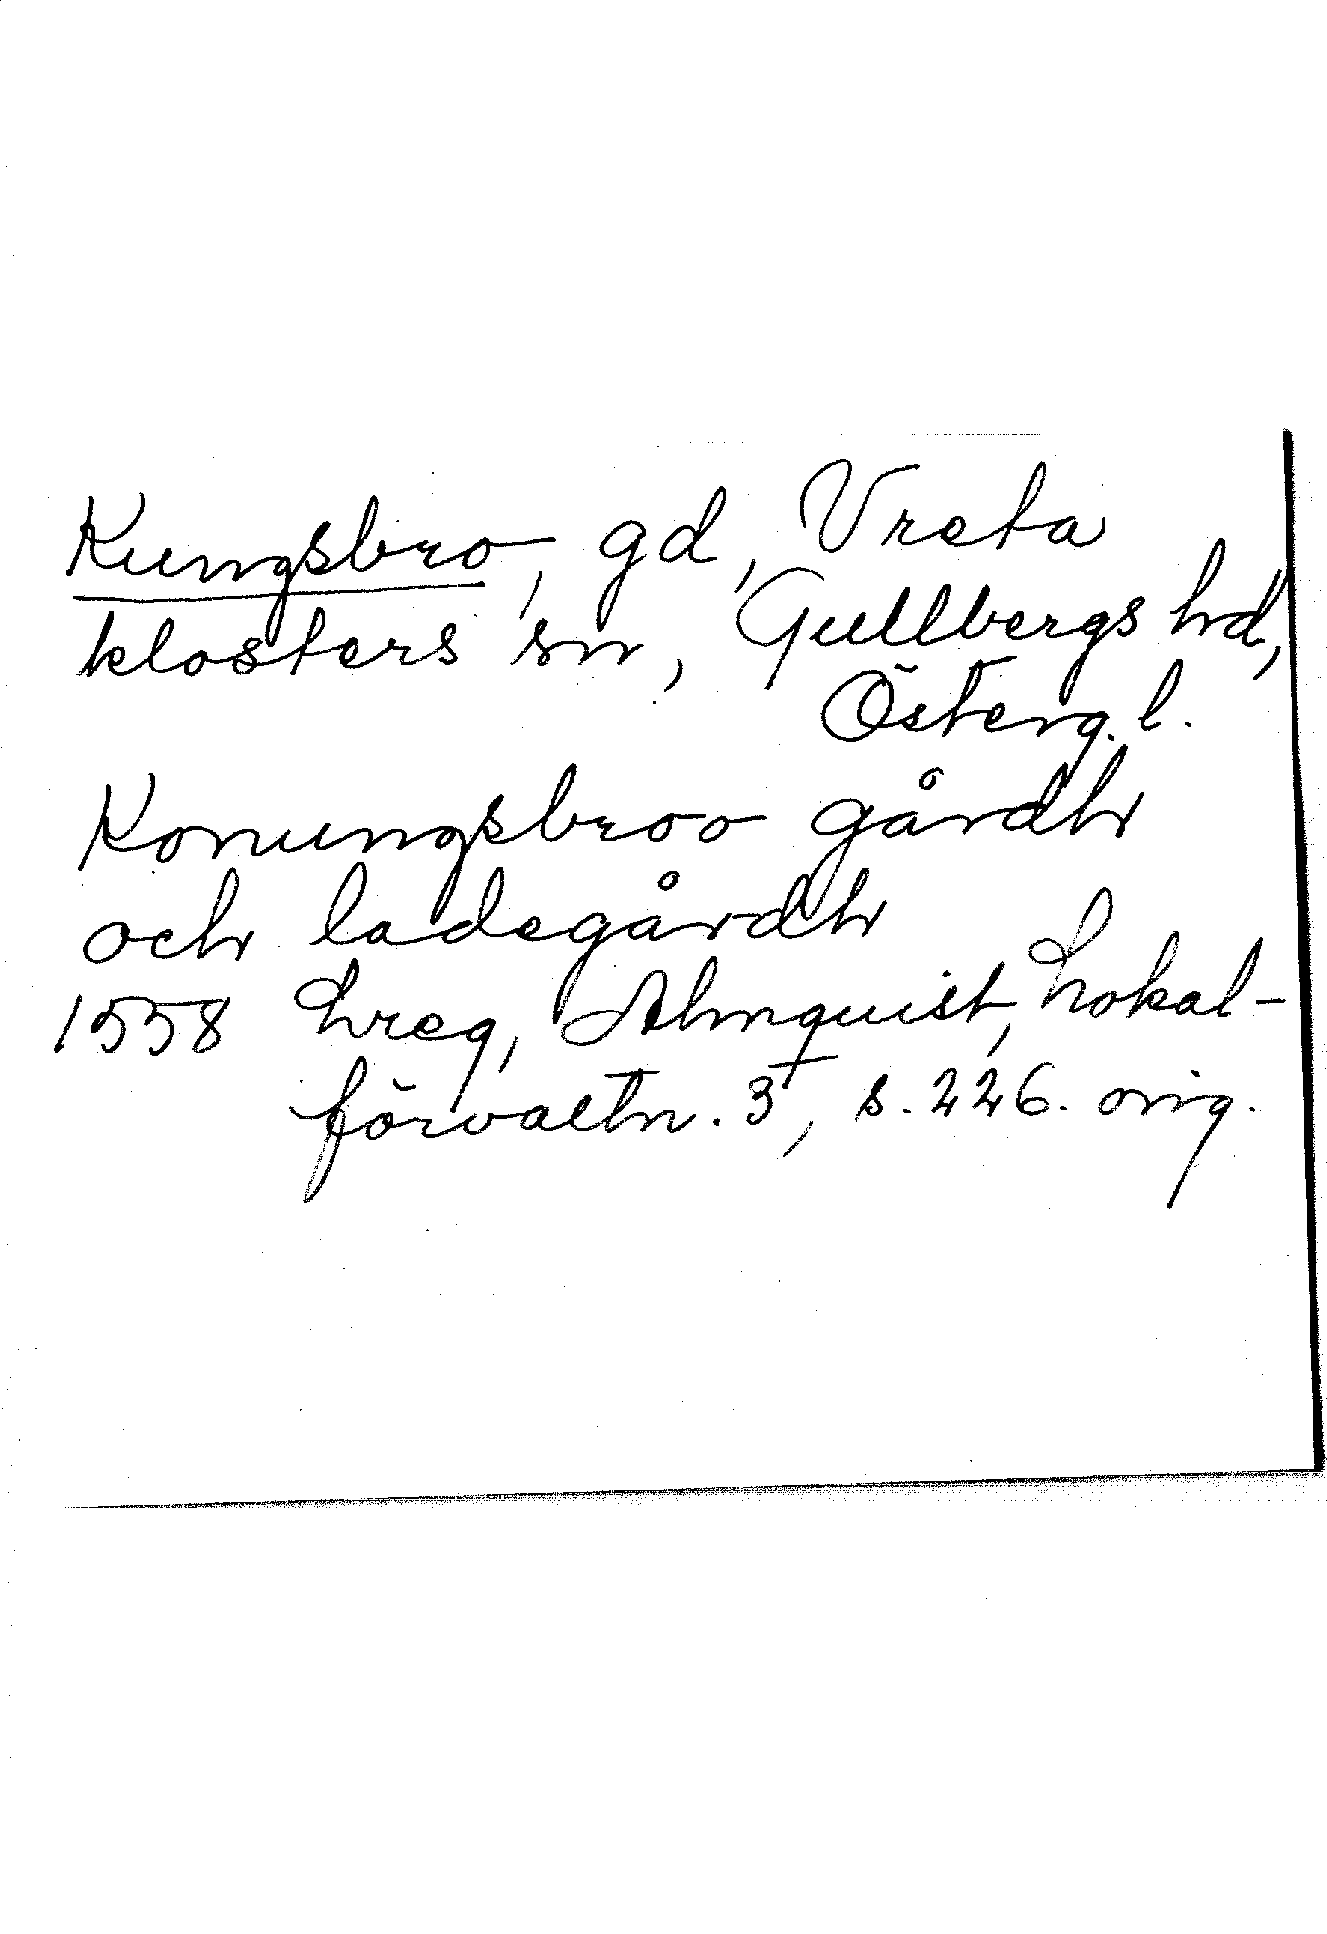 Kungsbro, gd, Vreta
klosters sn, Gullbergs hd,
Österg. l.
Konungsbroo gårdh
och ladegårdh
1558 Lreg, Almquist, Lokal-
förvaltn. 3, s. 226. orig.